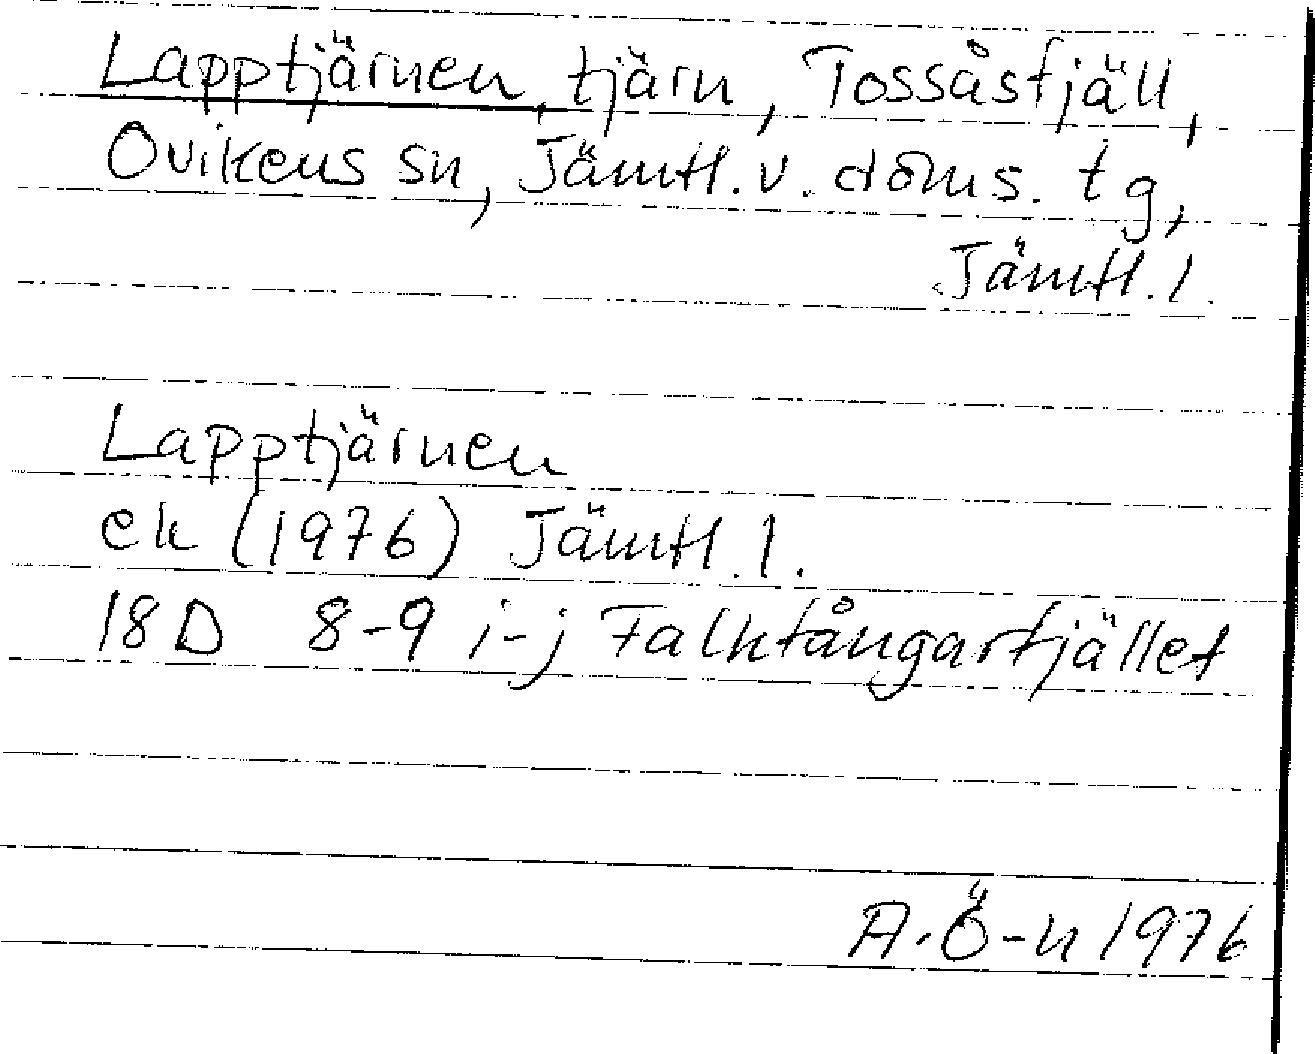 Lapptjärnen, tjärn, Tossåsfjäll,
Ovikens sn, Jämtl. v. doms. tg,
Jämtl. l.
Lapptjärnen
ek (1976) Jämtl. l.
18D 8-9 i-j Falkfångarfjället
A. Ö-n 1976